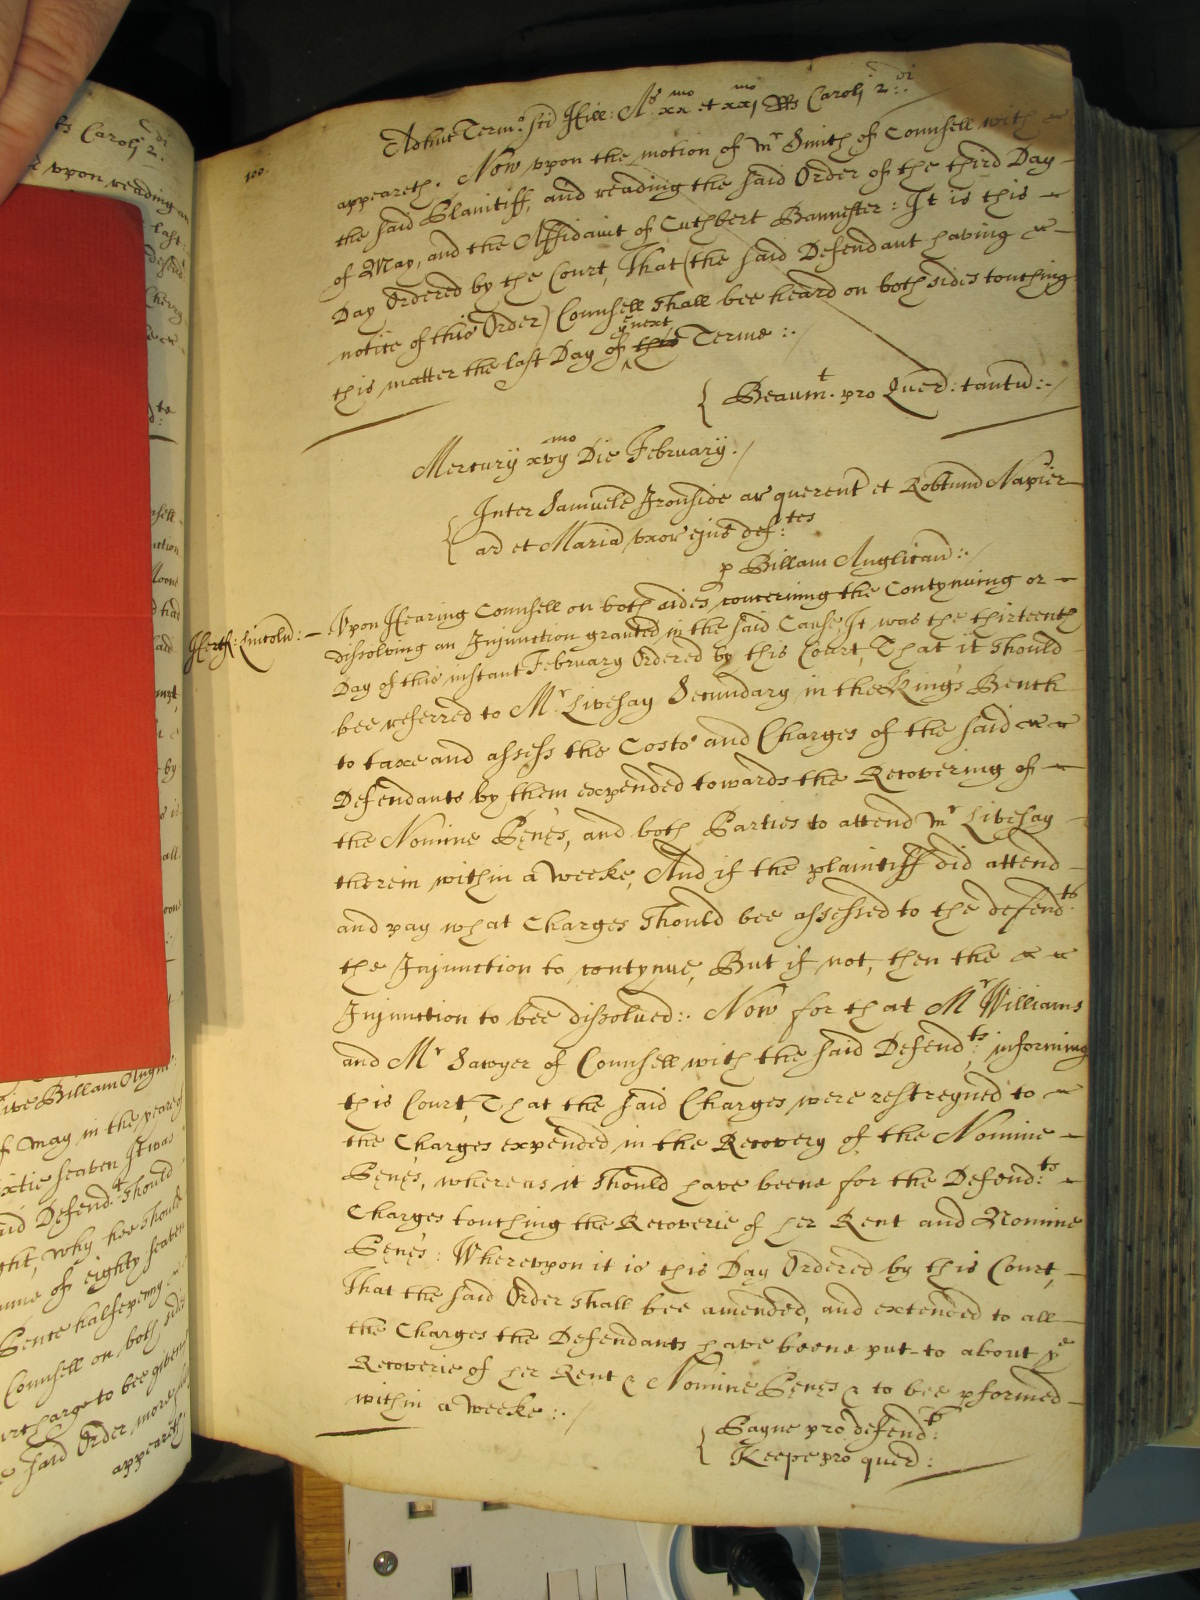 Adhuc Term.o Sci Hill: A.s xx.mo et xxj.mo RRs Caroli 2:di
100.
appeareth. Now vpon the motion of Mr Smith of Counsell with
the said Plaintiff, and reading the said Order of the third Day
of May, and the Affidavit of Cuthbert Bannester: It is this
Day Ordered by the Court, That (the said Defendant having
notice of this Order) Counsell shall bee heard on both sides touching
this matter the last Day of ye next this Terme :.
Beaum.t pro Quer: tantu:
Mercurij xvij.mo Die February.
Inter Samuele Ironside ar querent et Robtum Napier
ar et Maria vxor ejus def:tes
p Billam Anglican:.
Herth: Lincoln:
Vpon Hearing Counsell on both sides concerning the Contynuing or
dissolving an Injunction granted in the said Cause, It was the thirteenth
Day of this instant February Ordered by this Court, That it should
bee referred to Mr Livesay Secundary in the Kings Bench
to taxe and assess the Costs and Charges of the said
Defendants by them expended towards the Recovering of
the Nomine Penes, and both Parties to attend Mr Livesay
therein within a weeke, And if the plaintiff did attend
and pay what Charges should bee assessed to the defend:ts
the Injunction to contynue, But if not, then the
Injunction to bee dissolved:. Now for that Mr Williams
and Mr Sawyer of Counsell with the said Defend:ts informing
this Court, That the said Charges were restreyned to
the Charges expended in the Recovery of the Nomine
Penes, whereas it should have beene for the Defend:ts
Charges touching the Recoverie of her Rent and Nomine
Penes: Wherevpon it is this Day Ordered by this Court,
That the said Order shall bee amended, and extended to all
the Charges the Defendants have beene put to about ye
Recoverie of her Rent & Nomine Penes & to bee pformed
within a weeke :.
Payne pro defend:t
Keepe pro quer:
ts Caroli 2:di
vpon reading
last:
ive Billam Angli
of May in the yeare of
ixtie seaven It was
aid Defend:t should
ght, why hee should
mme of eighty seaven
Pence halfepenny
Counsell on both sides
urcharge to bee given
e said Order more
appeareth